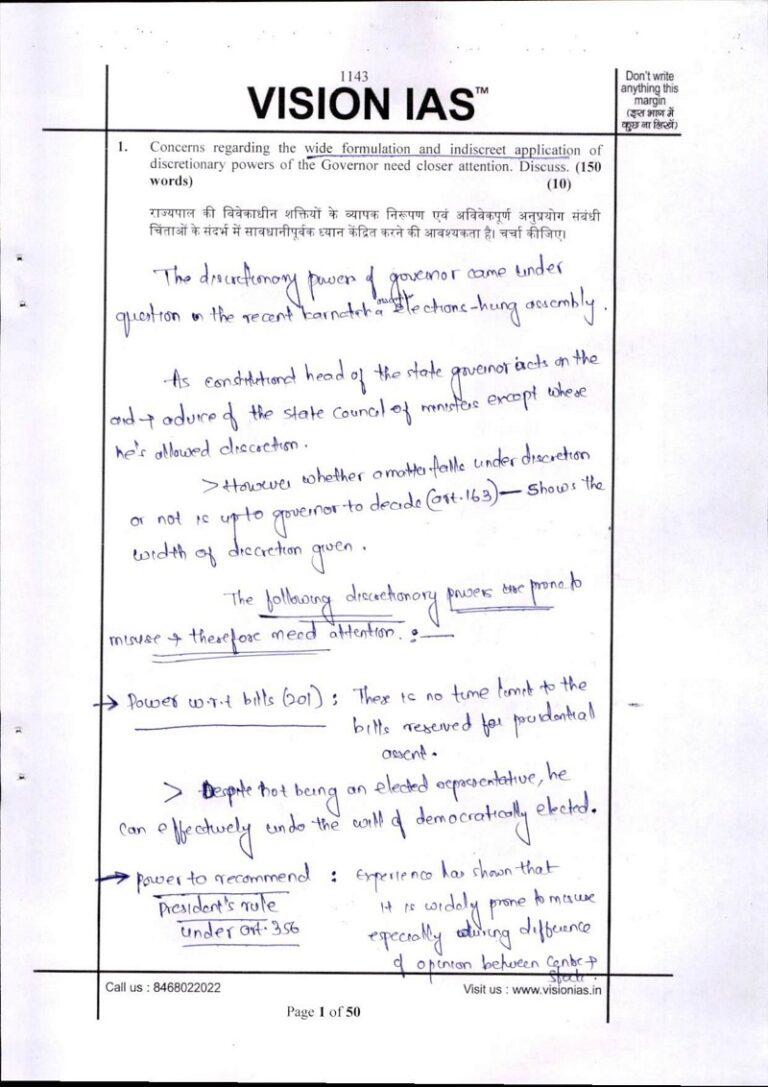 1143
VISION IAS™
Don't write
anything this
margin
(इस भाग में
कुछ ना लिखें)
1. Concerns regarding the wide formulation and indiscreet application of
discretionary powers of the Governor need closer attention. Discuss. (150
words) (10)
राज्यपाल की विवेकाधीन शक्तियों के व्यापक निरूपण एवं अविवेकपूर्ण अनुप्रयोग संबंधी
चिंताओं के संदर्भ में सावधानीपूर्वक ध्यान केंद्रित करने की आवश्यकता है। चर्चा कीजिए।
The discretionary power of governor came under
question in the recent Karnataka Elections - hung assembly.
As constitutional head of the state governor acts on the
aid + advice of the state Council of ministers except where
he's allowed discretion.
> However whether a matter falls under discretion
or not is upto governor to decide (art. 163) — Shows the
width of discretion given.
The following discretionary powers are prone to
misuse + therefore need attention. :—
→ Power w.r.t bills (201) : There is no time limit to the
bills reserved for presidential
assent.
> Despite not being an elected representative, he
can effectively undo the will of democratically elected.
→ Power to recommend : Experience has shown that
President's rule it is widely prone to misuse
under art. 356 especially during difference
of opinion between Centre +
State.
Call us : 8468022022 Visit us : www.visionias.in
Page 1 of 50